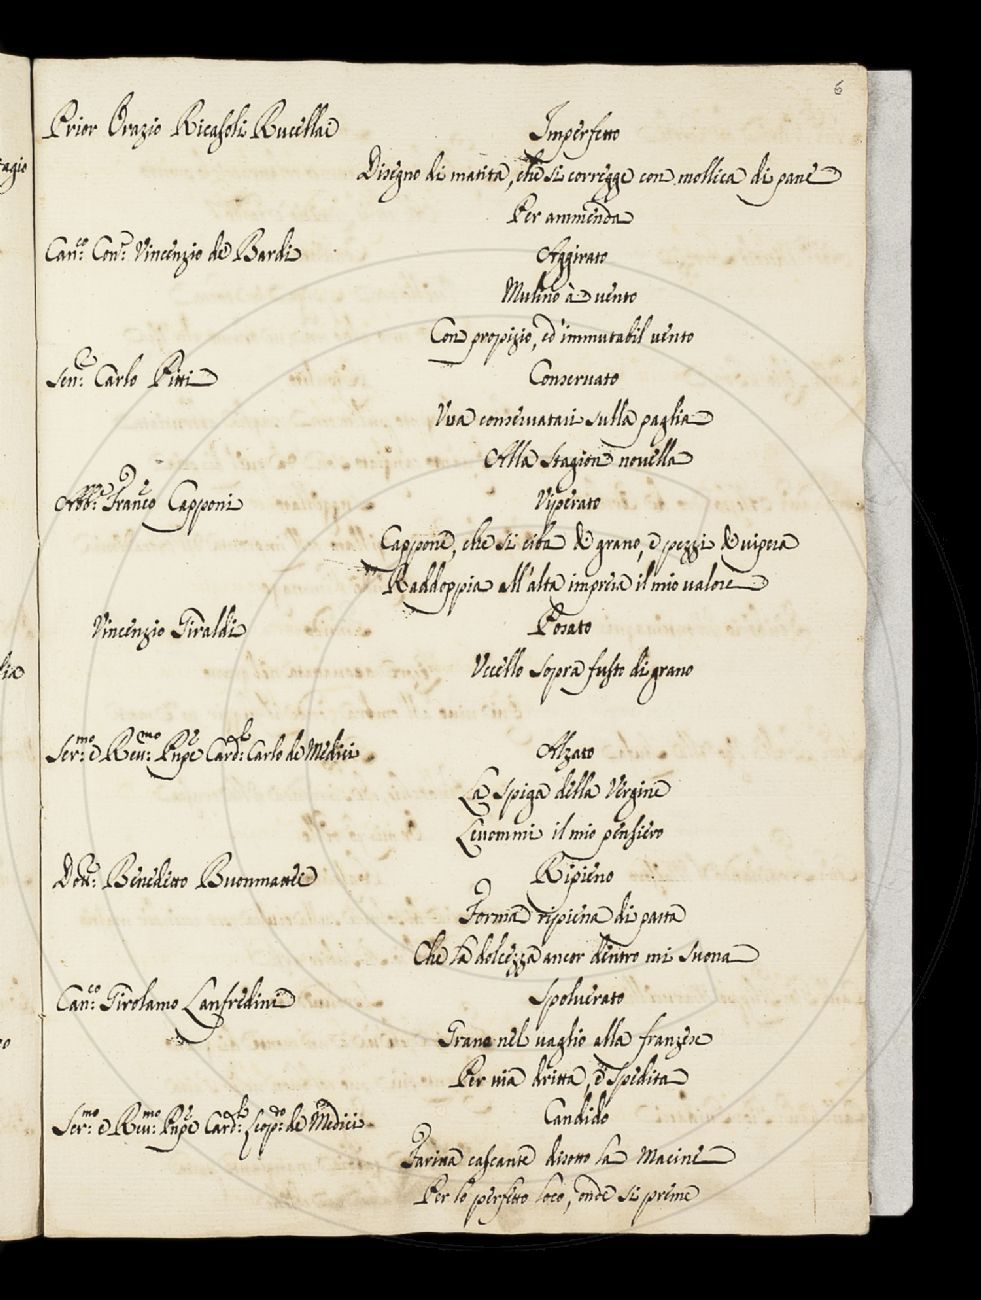 6
Prior Orazio Ricasoli Rucellai
Imperfetto
Disegno di matita, che si corregge con mollica di pane
Per ammenda
Can.co Con.e Vincenzio de Bardi
Aggirato
Mulino à vento
Con propizio, ed immutabil vento
Sen.e Carlo Pitti
Conservato
Uva conservatasi sulla paglia
Alla stagion novella
Abb.e Franc.o Capponi
Viperato
Cappone, che si ciba de grano, e pezzi de vipera
Raddoppia all'alta impresa il mio valore
Vincenzio Giraldi
Posato
Uccello sopra fusto di grano
Ser.mo e Rev.mo Pnpe Card.le Carlo de Medici
Alzato
La Spiga della Vergine
Levommi il mio pensiero
Dott.e Benedetto Buonmattei
Ripieno
Forma ripiena di pasta
Che la dolcezza ancor dentro mi suona
Can.co Girolamo Lanfredini
Spolverato
Grano nel vaglio alla franzese
Per via dritta, e spedita
Ser.mo e Rev.mo Pnpe Card.le Leop.do de Medici
Candido
Farina cascante disotto la Macine
Per lo perfetto loco, onde si preme